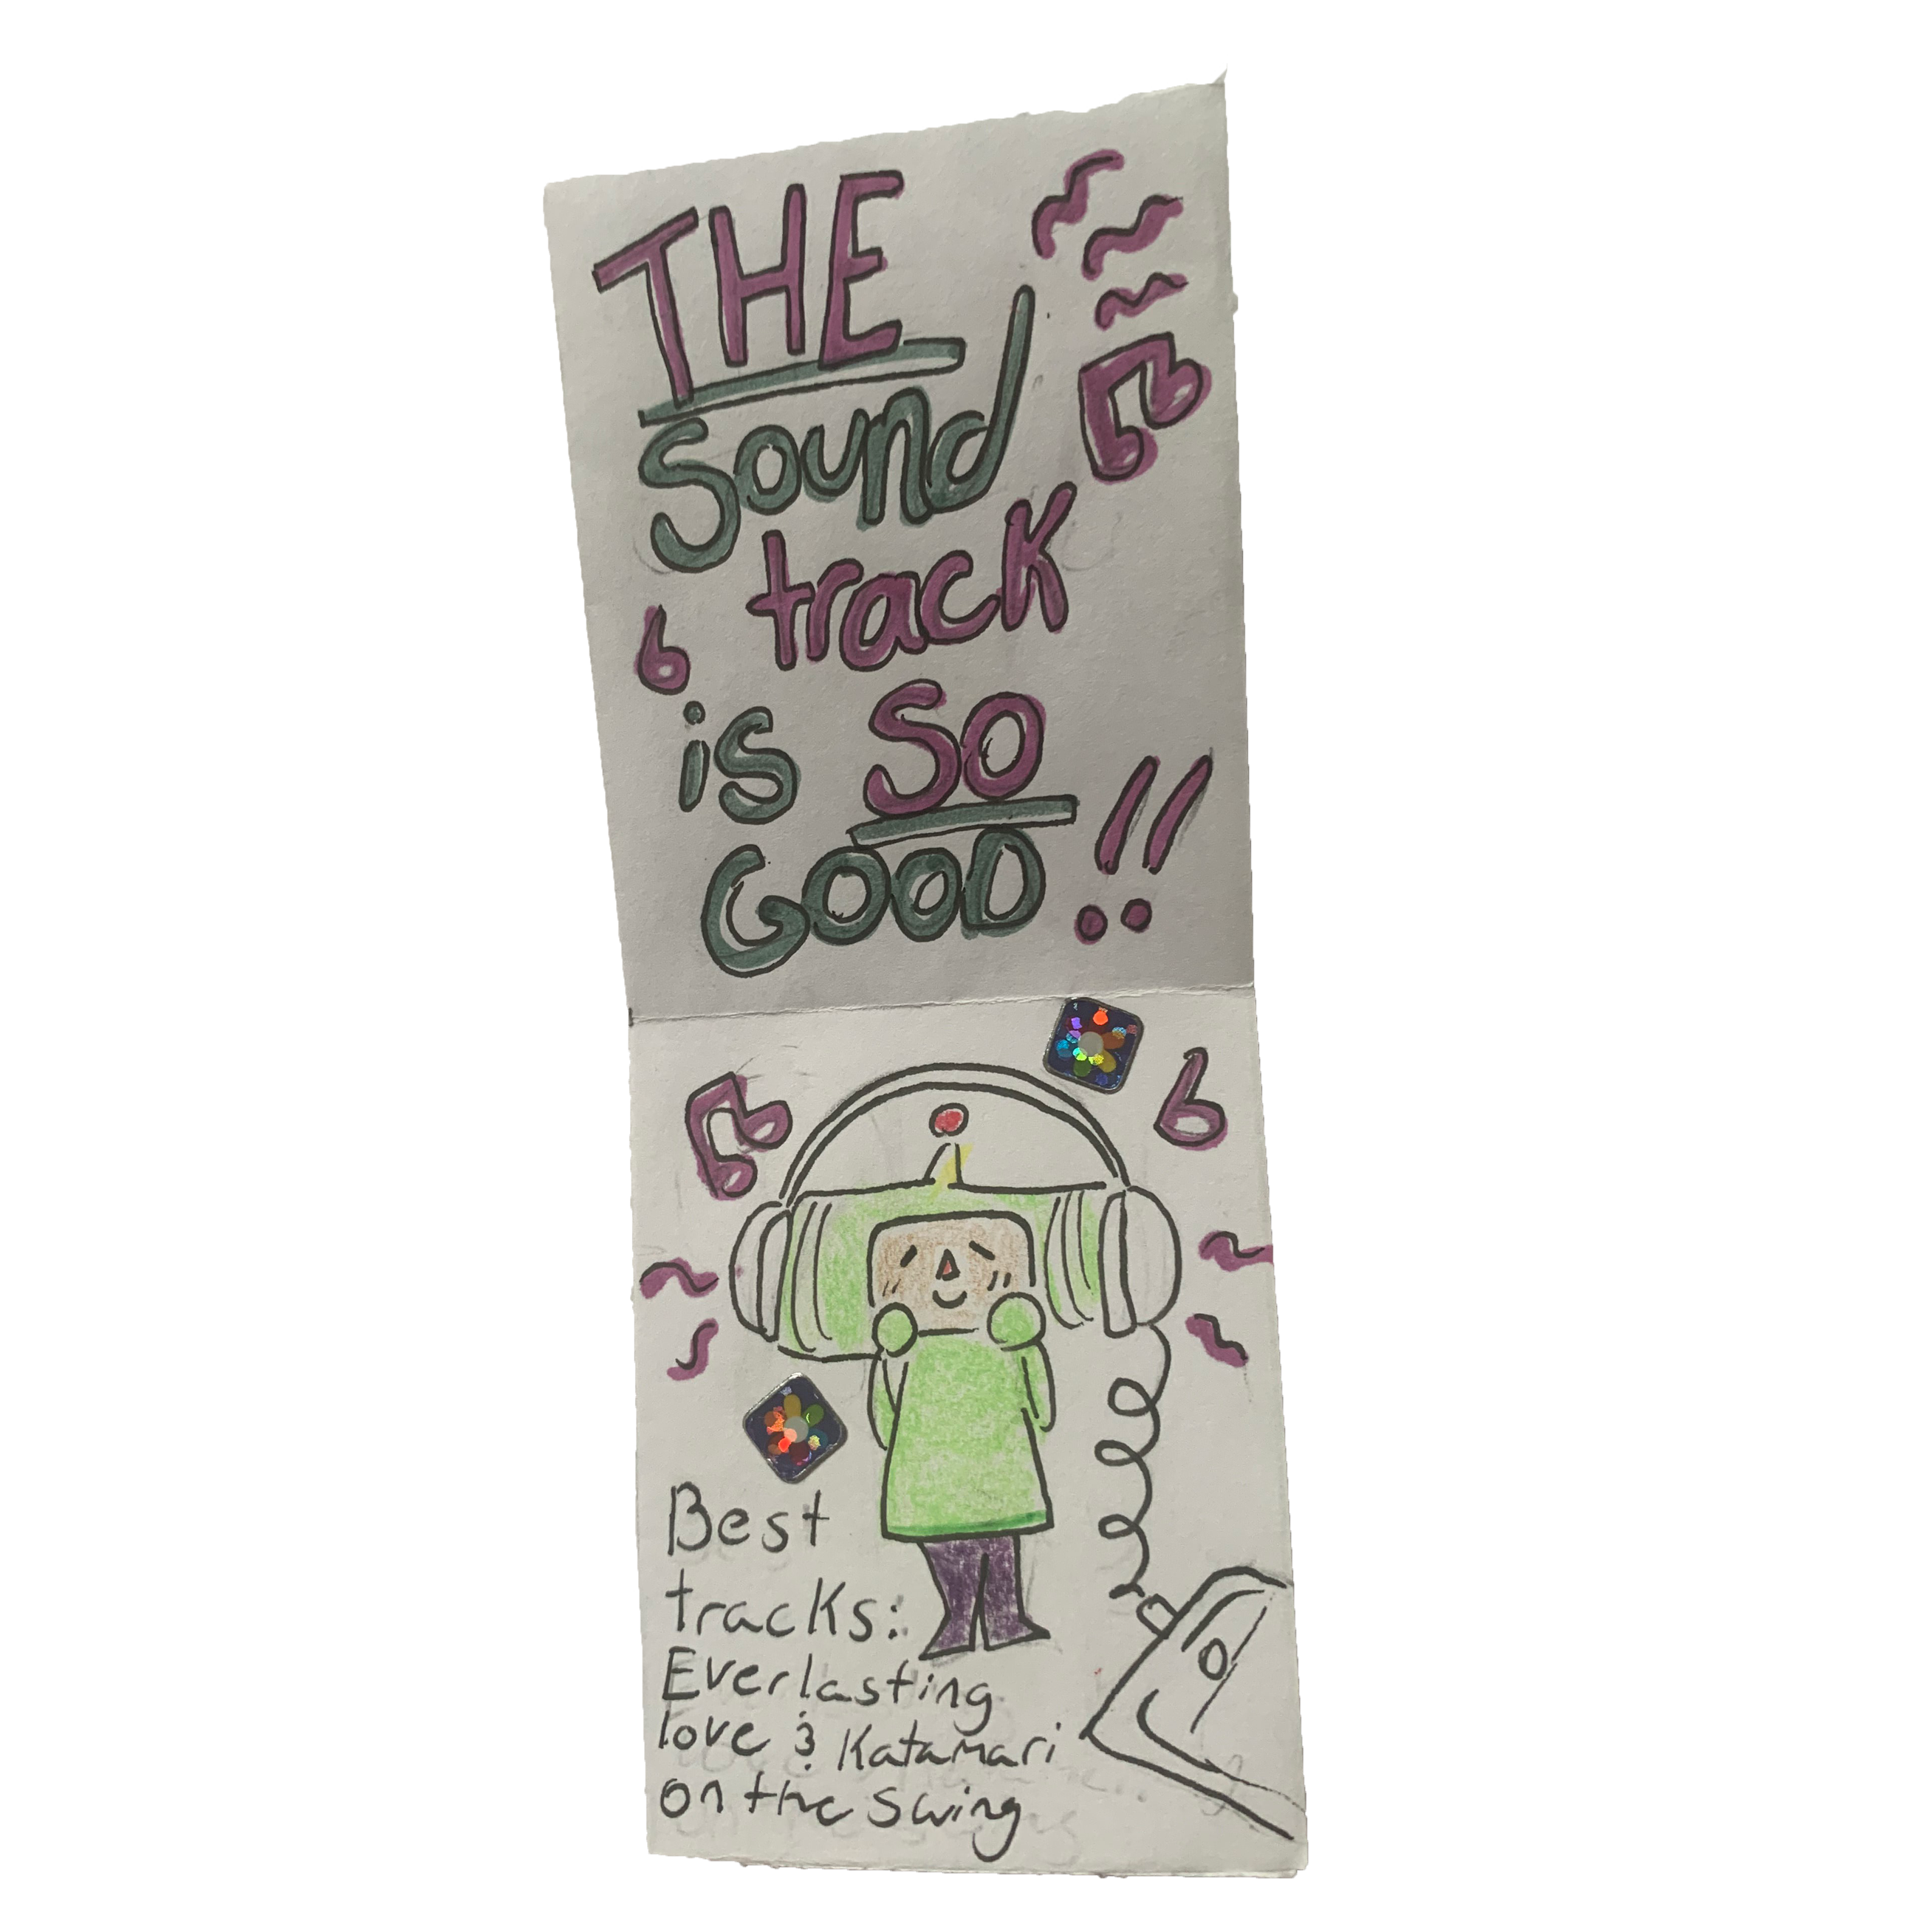 THE
sound
track
is SO
GOOD!!
Best
tracks:
Everlasting
love & Katamari
on the swing